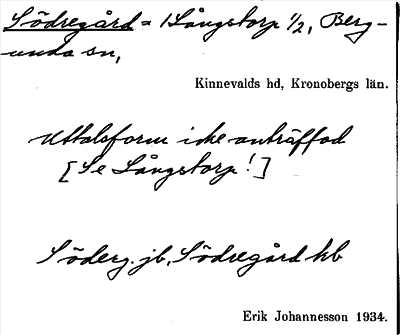 Södregård = 1 Långstorp 1/2, Berg-
unda sn,
Kinnevalds hd, Kronobergs län.
Uttalsform icke anträffad
[Se Långstorp!]
Söderg. jb, Södregård kb
Erik Johannesson 1934.